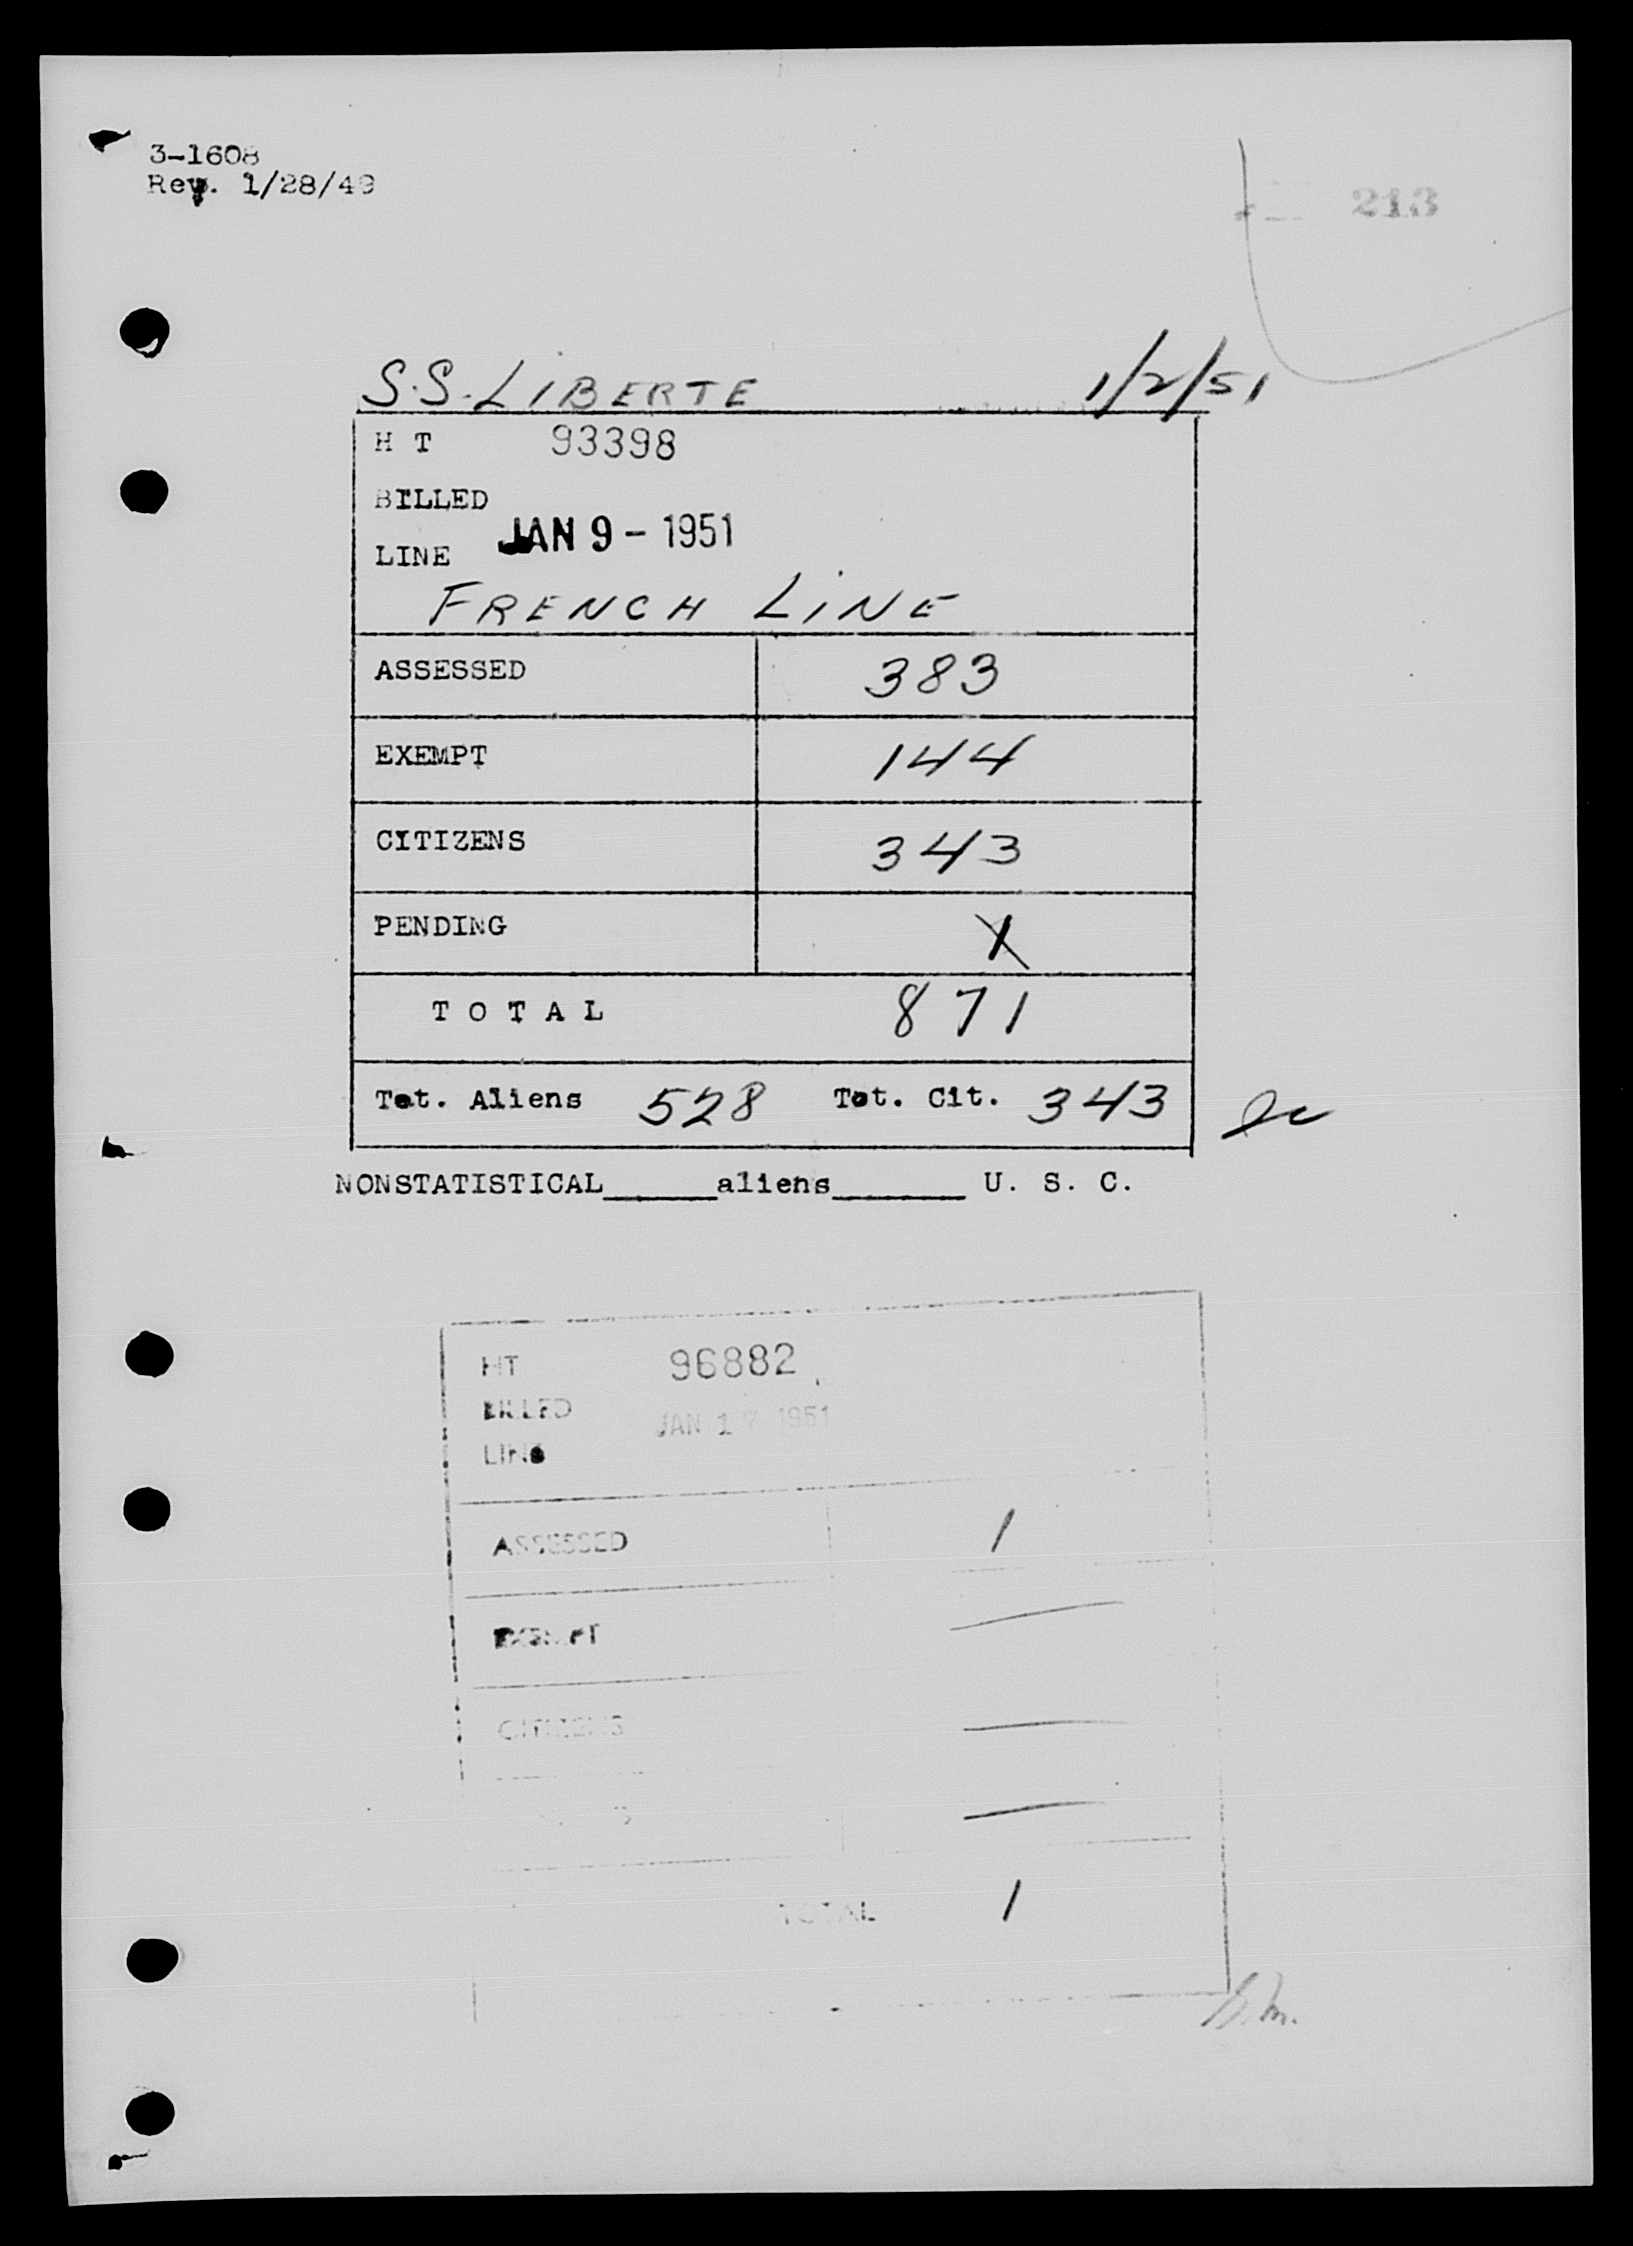 3-1608
Rev. 1/28/49
213
S.S. LIBERTE 1/2/51
H T 93398
BILLED
JAN 9 - 1951
LINE
FRENCH LINE
ASSESSED 383
EXEMPT 144
CITIZENS 343
PENDING X
T O T A L 871
Tot. Aliens 528 Tot. Cit. 343
NONSTATISTICAL______aliens_______ U. S. C.
HT 96882
BILLED
JAN 17 1951
LINE
ASSESSED 1
EXEMPT —
CITIZENS —
—
TOTAL 1